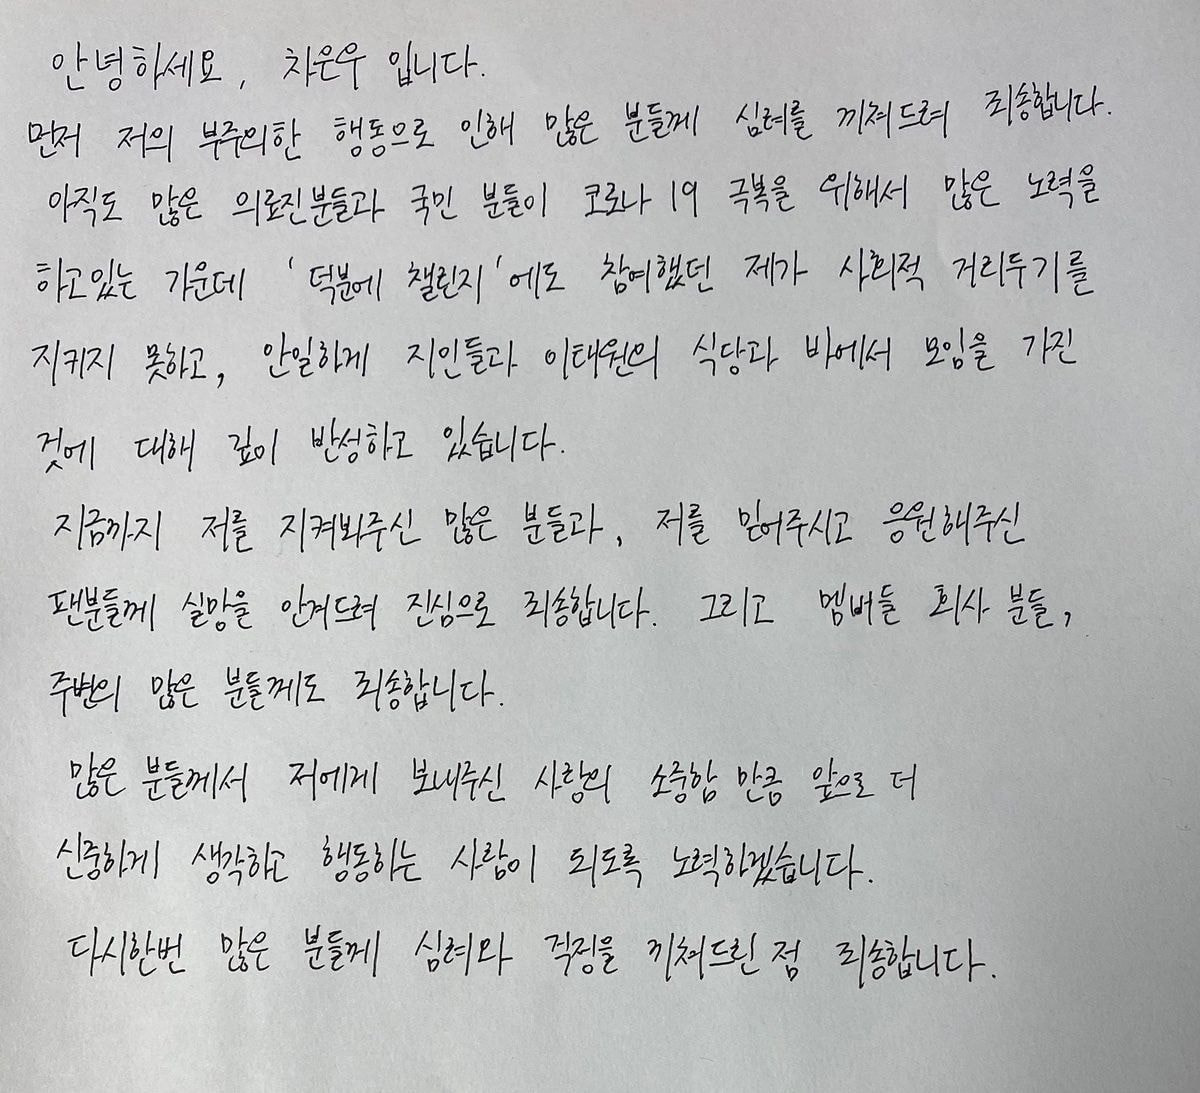 안녕하세요, 차은우 입니다.
먼저 저의 부주의한 행동으로 인해 많은 분들께 심려를 끼쳐드려 죄송합니다.
아직도 많은 의료진분들과 국민 분들이 코로나 19 극복을 위해서 많은 노력을
하고있는 가운데 '덕분에 챌린지'에도 참여했던 제가 사회적 거리두기를
지키지 못하고, 안일하게 지인들과 이태원의 식당과 바에서 모임을 가진
것에 대해 깊이 반성하고 있습니다.
지금까지 저를 지켜봐주신 많은 분들과, 저를 믿어주시고 응원해주신
팬분들께 실망을 안겨드려 진심으로 죄송합니다. 그리고 멤버들 회사 분들,
주변의 많은 분들께도 죄송합니다.
많은 분들께서 저에게 보내주신 사랑의 소중함 만큼 앞으로 더
신중하게 생각하고 행동하는 사람이 되도록 노력하겠습니다.
다시한번 많은 분들께 심려와 걱정을 끼쳐드린 점 죄송합니다.